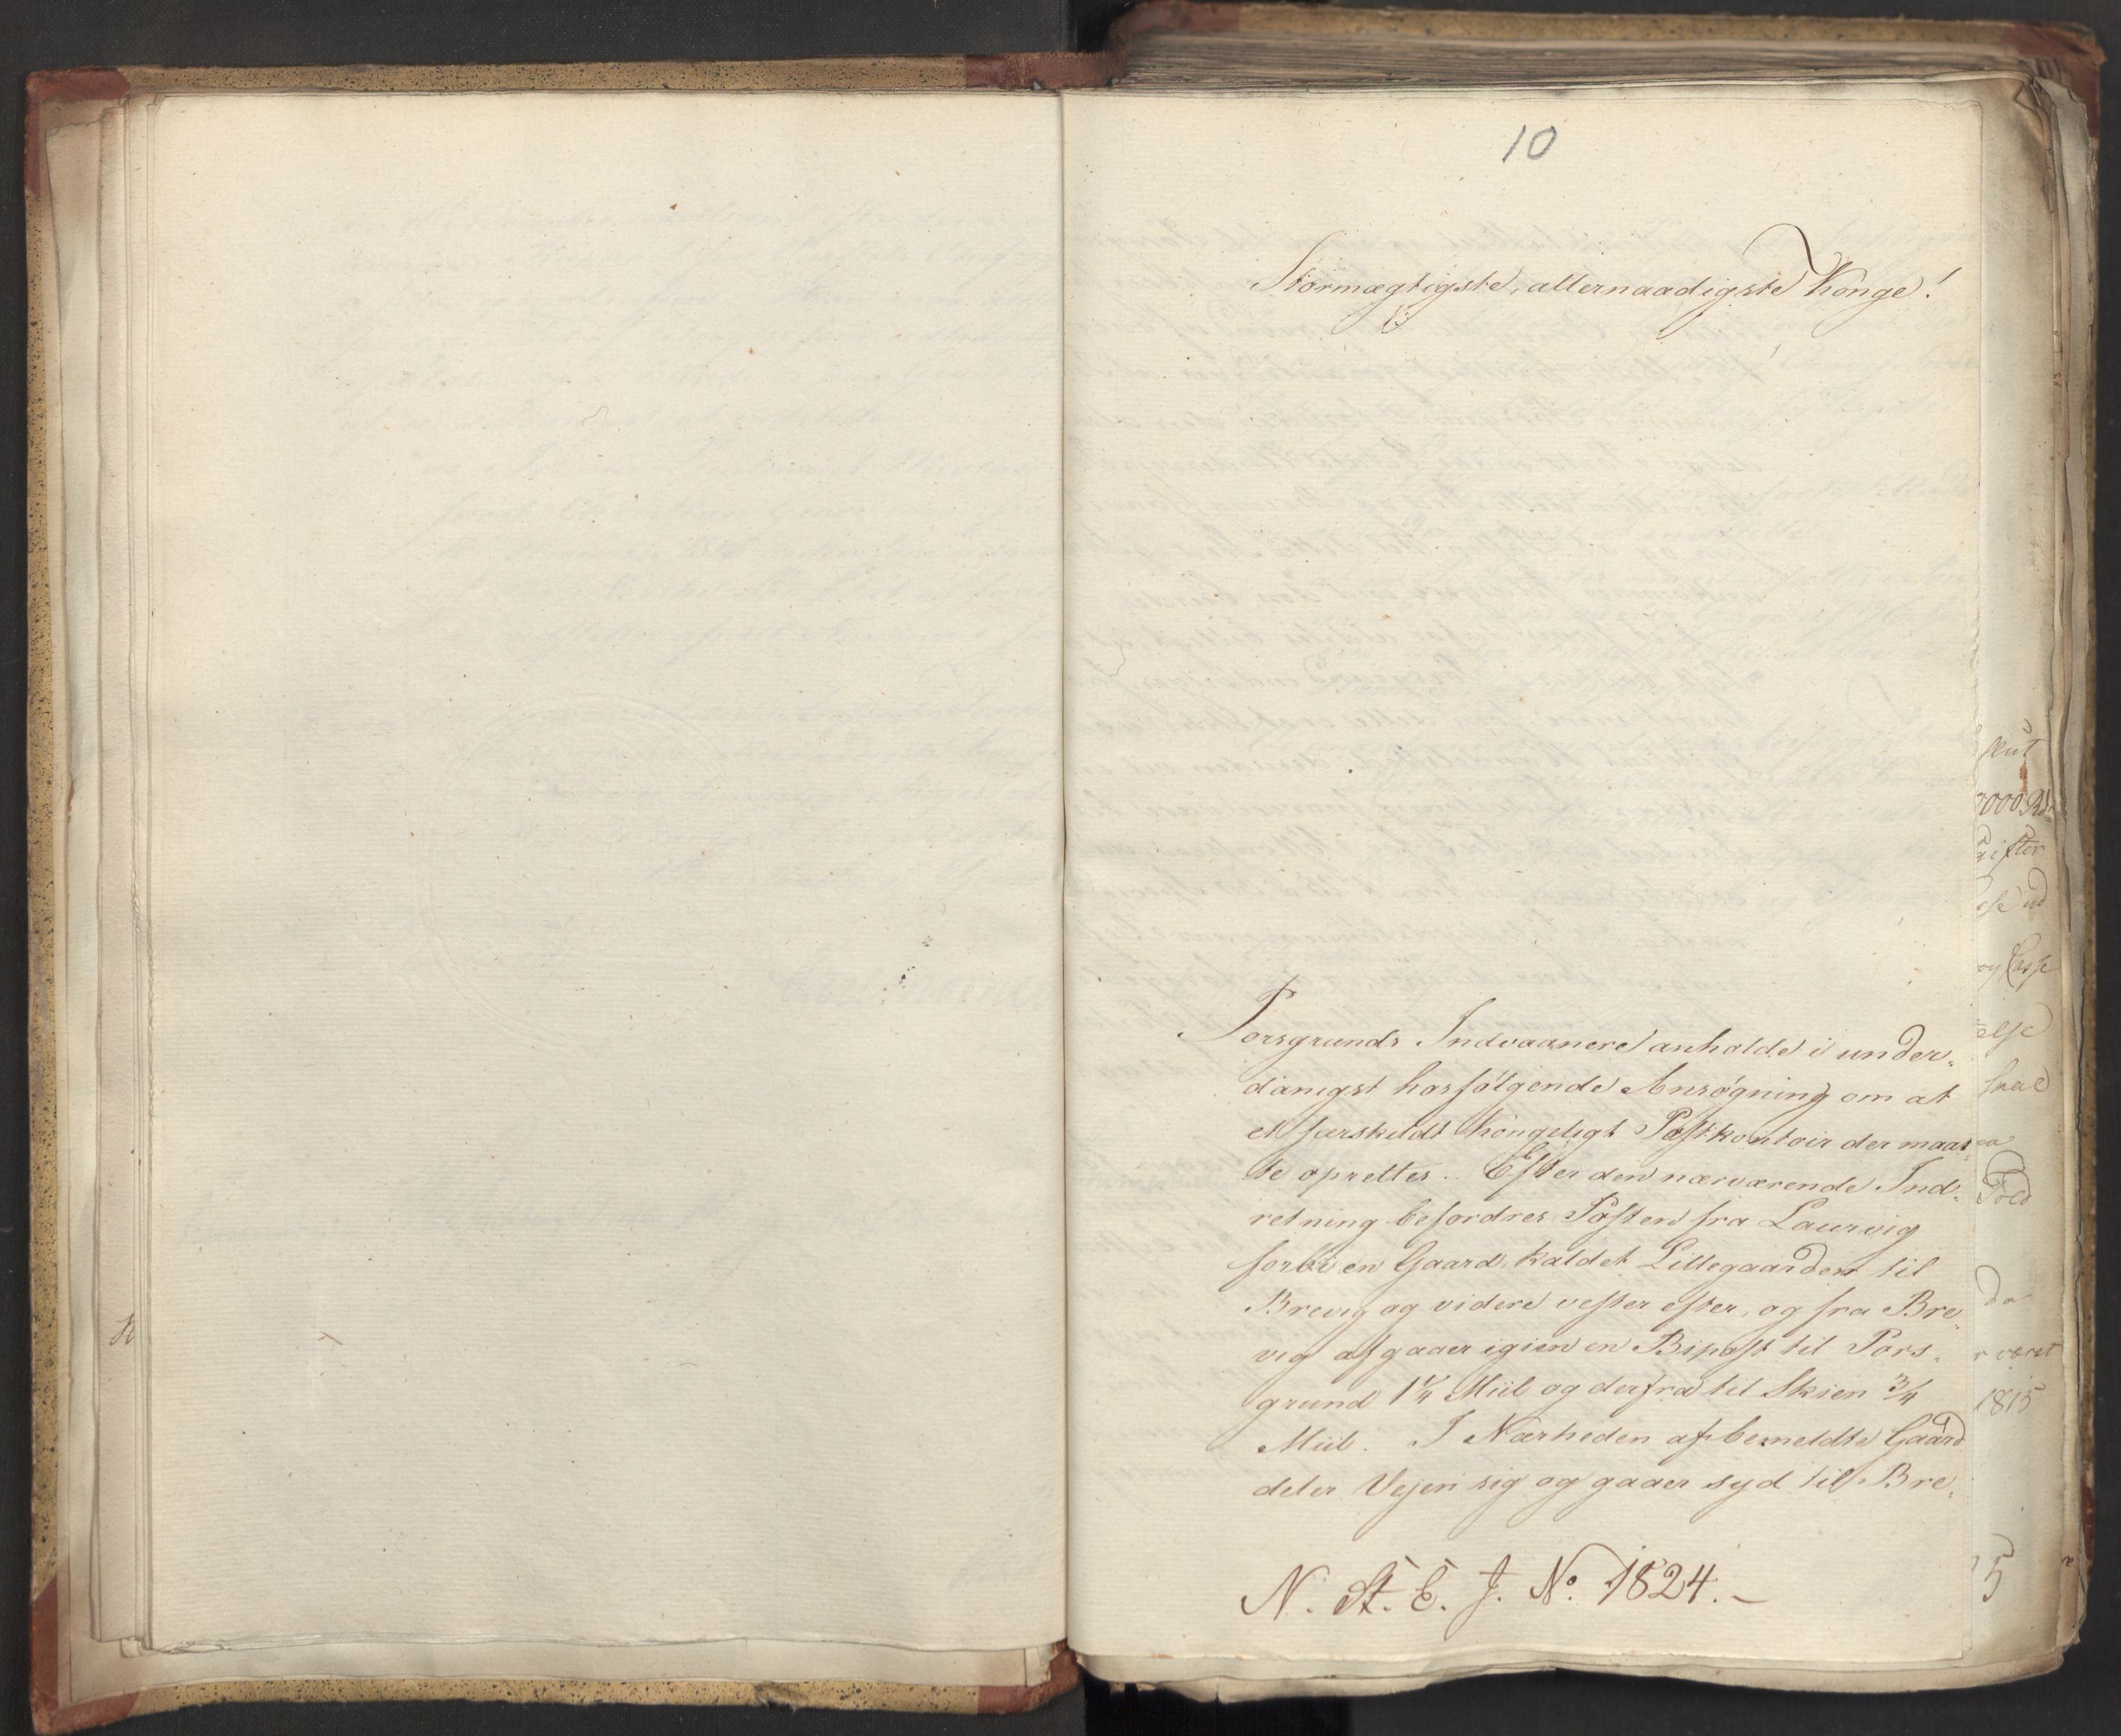 10
Stormægtigste, allernaadigste Konge!
Porsgrunds Indvaanere anholde i under-
danigst hosfølgende Ansøgning om at
et særskildt kongeligt Postkontoir der maat-
te oprettes. Efter den nærværende Ind-
retning befordres Posten fra Laurvig
forbi en Gaard, kaldet Lillegaarden til
Brevig og videre vester efter, og fra Bre-
vig afgaaer igien en Bipost til Pors-
grund 1 1/4 Miil og derfra til Skien 3/4
Miil. I Nærheden af bemeldte Gaard
deler Vejen sig og gaaer syd til Bre-
N. St. E. J. No. 1824.-
000 Rd
og
else
skal
Told
da
været
1815
5